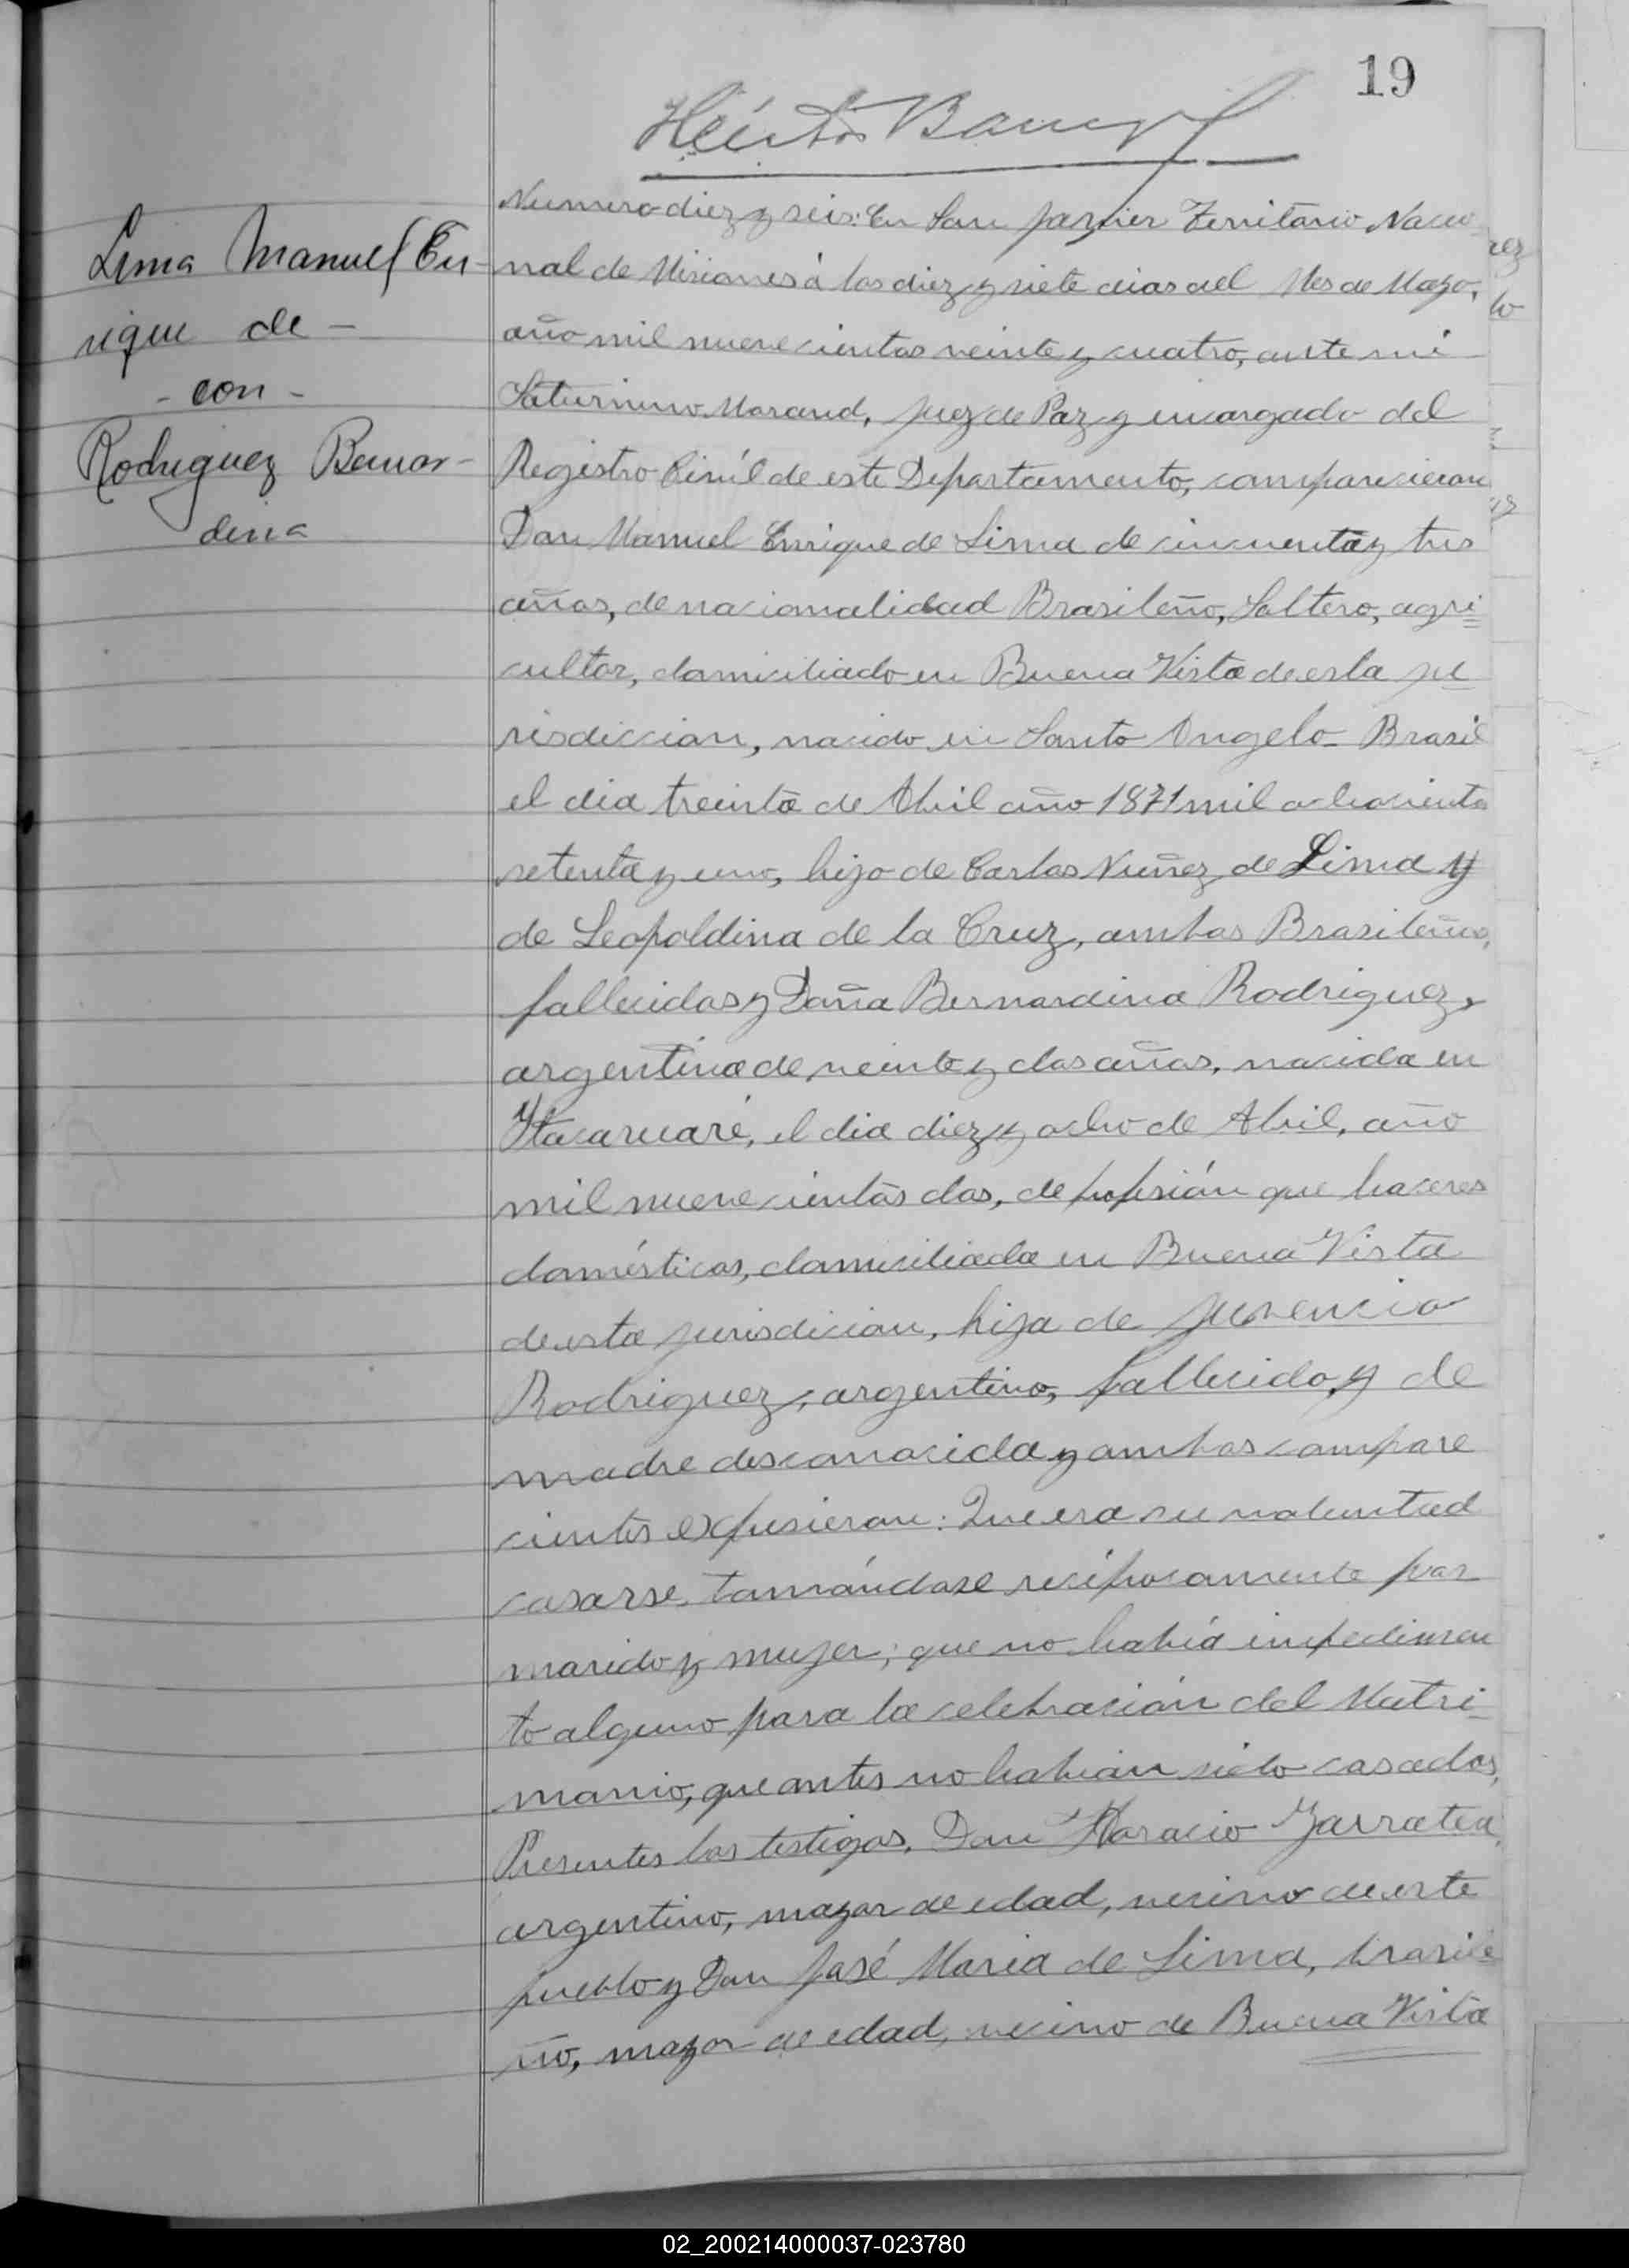 19
Lima Manuel En-
rique de -
- con -
Rodriguez Bernar-
dina
Numero diez y seis: En San Javier Territorio Nacio
nal de Misiones á los diez y siete dias del Mes de Mayo,
año mil nuevecientos veinte y cuatro, ante mi
Saturnino Morand, Juez de Paz y encargado del
Registro Civíl de este Departamento, comparecieron
Don Manuel Enrique de Lima de cincuenta y tres
años, de nacionalidad Brasileño, Soltero, agri
cultor, domiciliado en Buena Vista de esta ju
risdiccion, nacido en Santo Angelo - Brasil
el dia treinta de Abril año 1871 mil ochocientos
setenta y uno, hijo de Carlos Nuñez de Lima y
de Leopoldina de la Cruz, ambos Brasileños,
fallecidos y Doña Bernardina Rodriguez,
argentina de veinte y dos años, nacida en
Itacaruaré, el dia diez y ocho de Abril, año
mil nuevecientos dos, de profesión que haceres
domésticos, domiciliada en Buena Vista
de esta jurisdicion, hija de Juvencio
Rodriguez, argentino, fallecido y de
madre desconocida y ambos compare
cientes expusieron: Que era su voluntad
casarse, tomándose recíprocamente por
marido y mujer; que no había impedimen
to alguno para la celebración del Matri
monio, que antes no habian sido casados,
Presentes los testigos, Don Horacio Zarratea,
argentino, mayor de edad, vecino de este
pueblo y Don José Maria de Lima, brasile
ño, mayor de edad, vecino de Buena Vista
02_200214000037-023780